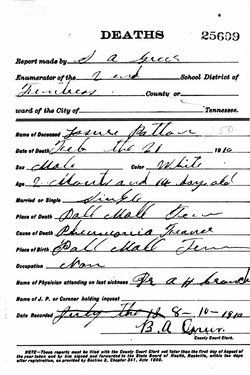 DEATHS
25609
Report made by S A
Enumerator of the 2 nd School District of
Fentress County or
ward of the City of Tennessee.
Name of Deceased
Date of Death Feb the 21 1910
Sex Male Color White
Age 2 Months and 14 days old
Married or Single Single
Place of Death Pall Mall Tenn
Cause of Death
Place of Birth Pall Mall Tenn
Occupation Non
Name of Physician attending on last sickness Dr A H
Name of J. P. or Coroner holding inquest
Date Recorded July the 8-10-1910
B. A.
County Court Clerk.
NOTE—These reports must be filed with the County Court Clerk not later than the first day of August of
the year taken, and by him signed and forwarded to the State Board of Health, Nashville, within ten days
after registration, as provided by Section 2, Chapter 241,